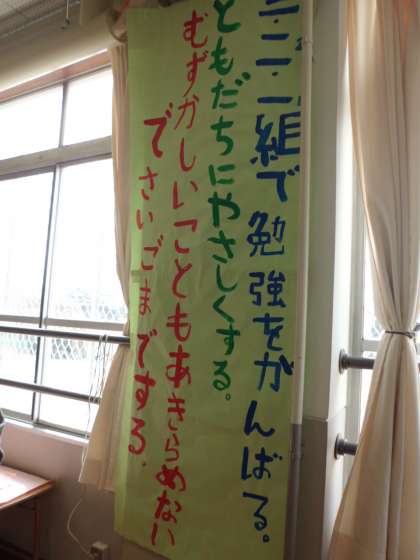 三・二・一組で勉強をがんばる。
ともだちにやさしくする。
むずかしいこともあきらめない
でさいごまでする。